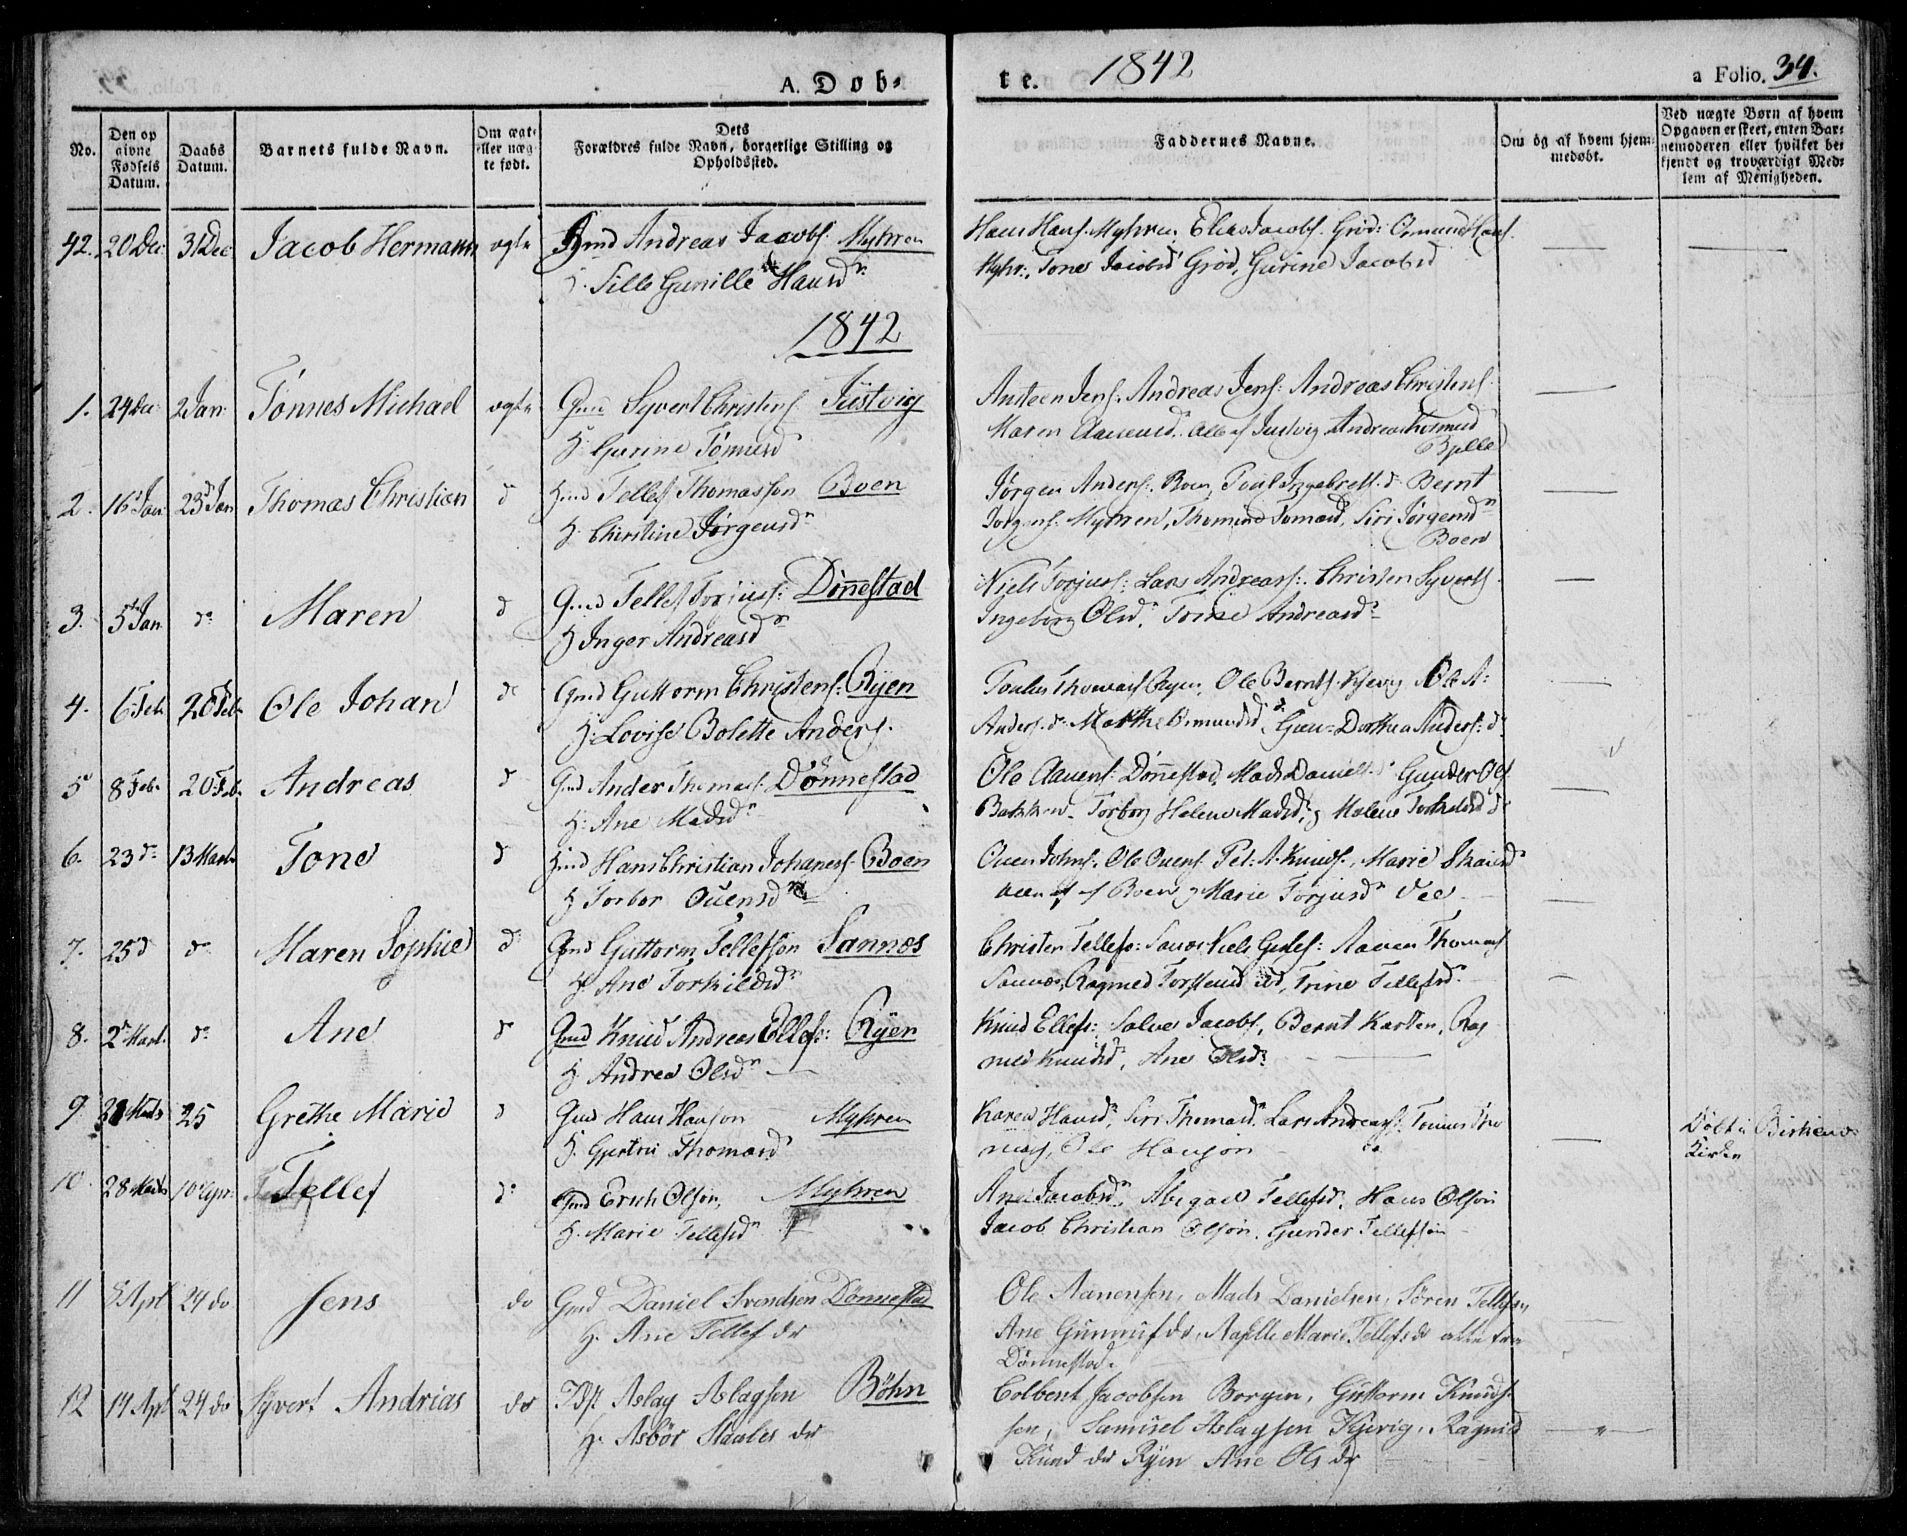 A. Døb-
te. 1842
a Folio. 34.
No.
Den op givne Fødsels Datum.
Daabs Datum.
Barnets fulde Navn.
Om ægte eller uægte født.
Dets
Forældres fulde Navn, borgerlige Stilling og
Opholdssted.
Faddernes Navne.
Om og af hvem hjemmedøbt.
Ved uægte Børn af hvem
Opgaven er skeet, enten Bar-
nemoderen eller hvilket be-
kjendt og troværdigt Med-
lem af Menigheden.
42. 20 Dec 31 Dec Jacob Hermann ægte Hmd Andreas Jacobs. Myhren
H. Sille Gunille Hansd.
Hans Hans. Myhren Elias Jacobs. Grød: Osmund Hans.
Myhr:, Tone Jacobsd Grød, Gurine Jacobsd
1842
1. 24 Dec 2 Jan: Tønnes Michael ægte Gmd Syvert Christens Justvig
H. Gurine Tønnesd
Anteen Jens. Andreas Jens: Andreas Christens.
Maren Aanensd. alle af Justvig Andrea
2. 16 Jan 23 Jan Thomas Christian d Hmd Tellef Thomasson Boen
H. Christine Jørgensd
Jørgen Anders. Boen, Poul Ingebrett. d. Bernt
Jørgens. Myhren, Siri Jørgensd
Boen
3. 5 Jan do Maren d Gmd Tellef Torjuss: Dønnestad
H Inger Andreasd
Niels Torjuss: Lars Andreass: Christen Syverts.
Ingeborg Olsd, Tone Andreasd
4. 6 Feb 20 Feb Ole Johan d Gmd Guttorm Christens: Ryen
H. Lovise Bolette Anders.
Thomas Ryen, Ole Bernts. Kjevig Ole A:
Anders. d. Marthe Osmundsd, Dorthea Anders: d.
5 8 Feb. 20 Feb Andreas d Gmd Ander Thomas. Dønnestad
H. Ane Madsd
Ole Aanens. Dønnestad, Mads Daniels. Gunder Ols
Bakken. Torborg Helene Madsd, Malene
6. 23 d. 13 Marts Tone d Hmd Hans Christian Johaness. Boen
H Torbor Ouensd
Ouen Johns. Ole Ouens. Pet: A. Knuds., Marie
af Boen, Marie Torjusd Vee
7. 25 d do Maren Sophie d Gmd Guttorm Tellefson Sannes
H. Ane Torkildsd
Christen Tellefs: Sannes Niels Aanen Thomas
Sannes, Ragnild Torstensd, Trine Tellefsd.
8. 2 Mart. do Ane d Gmd Knud Andreas Ellefs: Ryen
H. Andrea Olsd
Knud Ellefs: Salve Jacobs, Bernt Karsten, Rag
nild Knudsd, Ane Olsd.
9. 21 Marts 25 Grethe Marie d Gmd Hans Hanson Myhren
H. Gjertru Thomasd
Karen Hansd, Siri Thomasd. Lars Andreas, Tønnes Tho
mas, Ole Hanson do
Døbt i Birkenes
Kirke
10. 28 Marts 10 Apr: Tellef d Gmd Erich Olson, Myhren
H. Marie Tellefsd
Ane Jacobsd, Abigael Tellefsd. Hans Olson
Jacob Christian Olson. Gunder Tellefson
11 8 Apl 24 do Jens do Gmd Daniel Svendsen Dønnestad
H. Ane Tellef dr
Ole Aanensen, Mads Danielsen, Søren Tellefsen
Ane Gunnufdr, Marie Tellefsdr alle fra
Dønnestad.
12 14 Apl 24 do Syvert Andrias do Aslag Aslagsen Bøhn
H. Asbør Staales dr
Colbent Jacobsen Borgen, Guttorm Knud-
sen, Samuel Aslagsen Kjevig, Ragnild
Knud dr Ryen Ane Ols dr